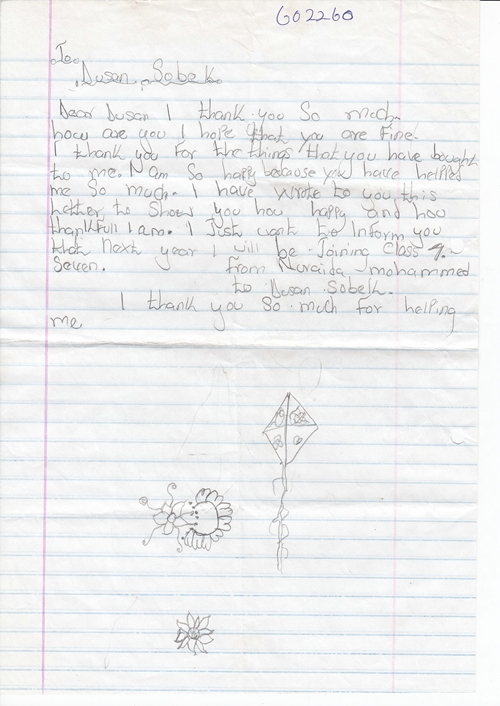 602260
To
Dusan Sobek
Dear Dusan I thank you So much.
how are you I hope that you are Fine.
I thank you For the things that you have bought
to me. N am So happy because you have helped
me So much. I have wrote to you this
Letter to Show you how happy and how
thankfull I am. I Just want to Inform you
that Next year I will be Joining Class 7.
Seven. From Nuraida mohammed
to Dusan Sobek.
I thank you So much For helping
me